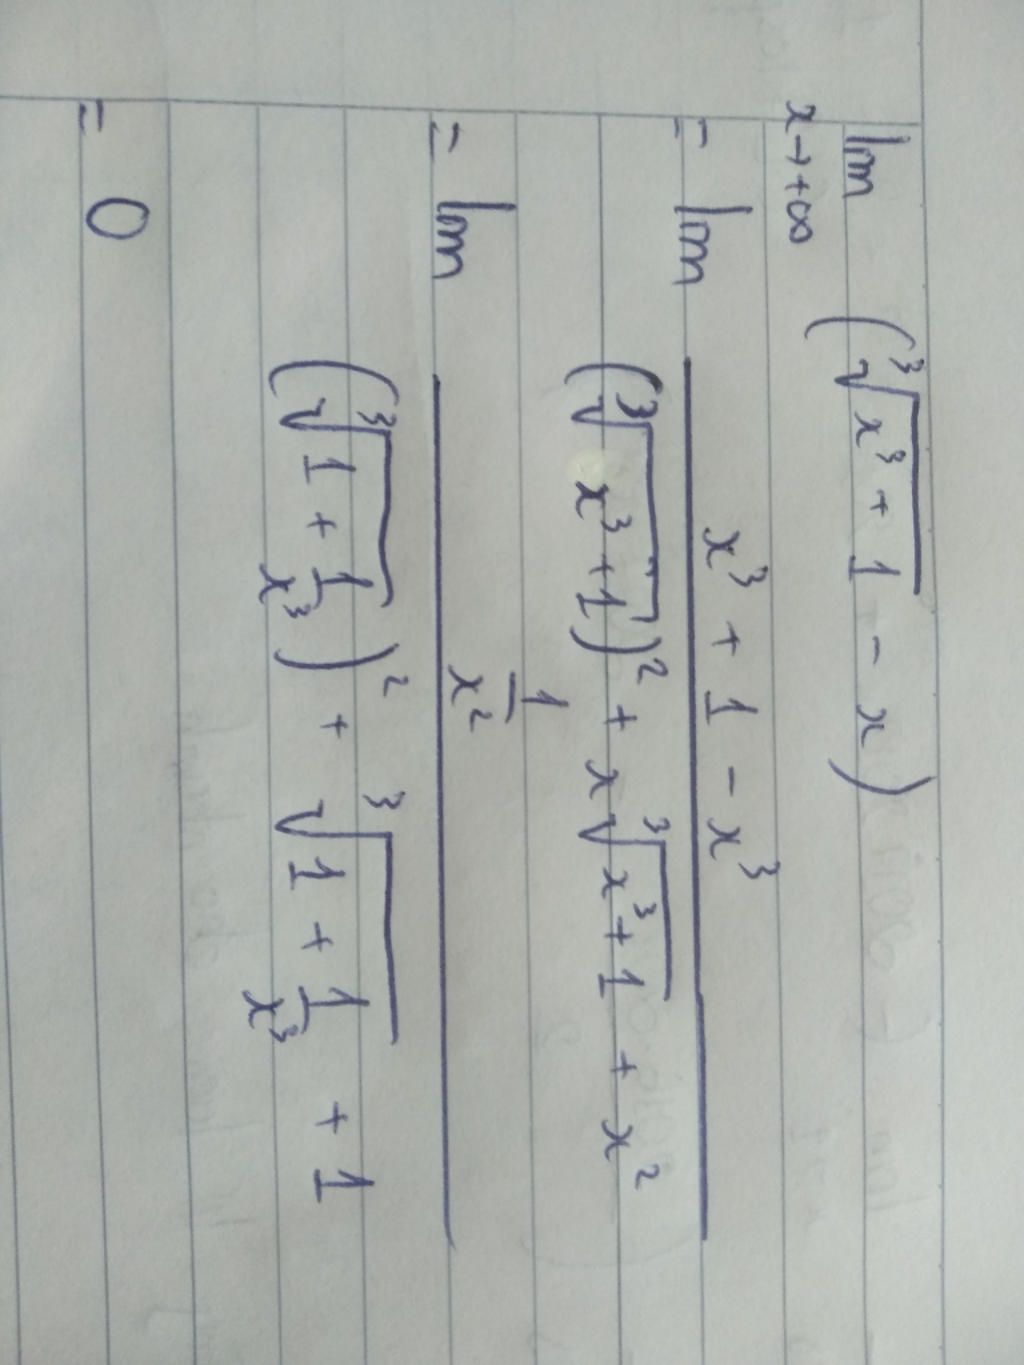 lim x→+∞ (∛(x³ + 1) - x)
= lim (x³ + 1 - x³) / ((∛(x³ + 1))² + x∛(x³ + 1) + x²)
= lim (1/x²) / ((∛(1 + 1/x³))² + ∛(1 + 1/x³) + 1)
= 0